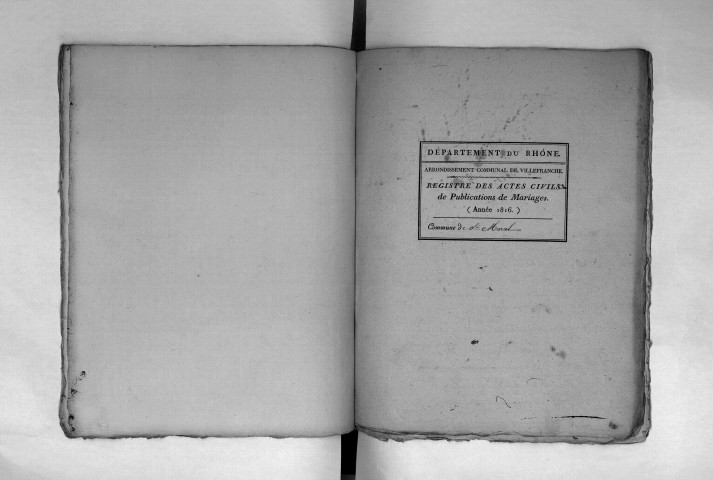 DÉPARTEMENT DU RHÔNE.
ARRONDISSEMENT COMMUNAL DE VILLEFRANCHE.
REGISTRE DES ACTES CIVILS
de Publications de Mariages.
( Année 1816. )
Commune de